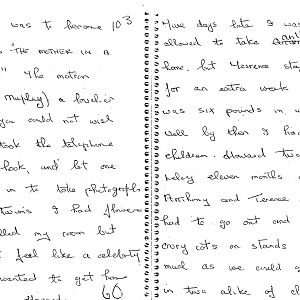 was to become 103
"THE MOTHER IN A
" The matron
Murphy) a lovelier
you could not wish
took the telephone
hook, and let one
in to take photographs
twins I had flowers
lled my room but
feel like a celebrity
wanted to get home
60
Five days late I was
allowed to take
home, but Terence stay
for an extra week
was six pounds in w
well by then I had
children. Howard two
Lesley eleven months a
Anthony and Terence
had to go out and
cots on stands
much as we could g
in two alike of